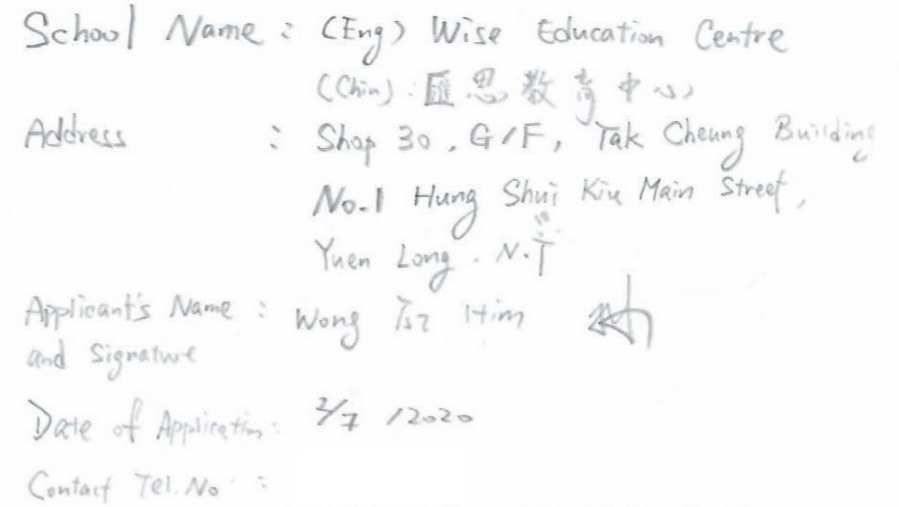 School Name : (Eng) Wise Education Centre
(Chin) : 匯思教育中心
Address : Shop 30, G/F, Tak Cheung Building
No.1 Hung Shui Kiu Main Street,
Yuen Long, N.T
Applicant's Name : Wong Tsz Him
and Signature
Date of Application : 2/7/2020
Contact Tel. No :